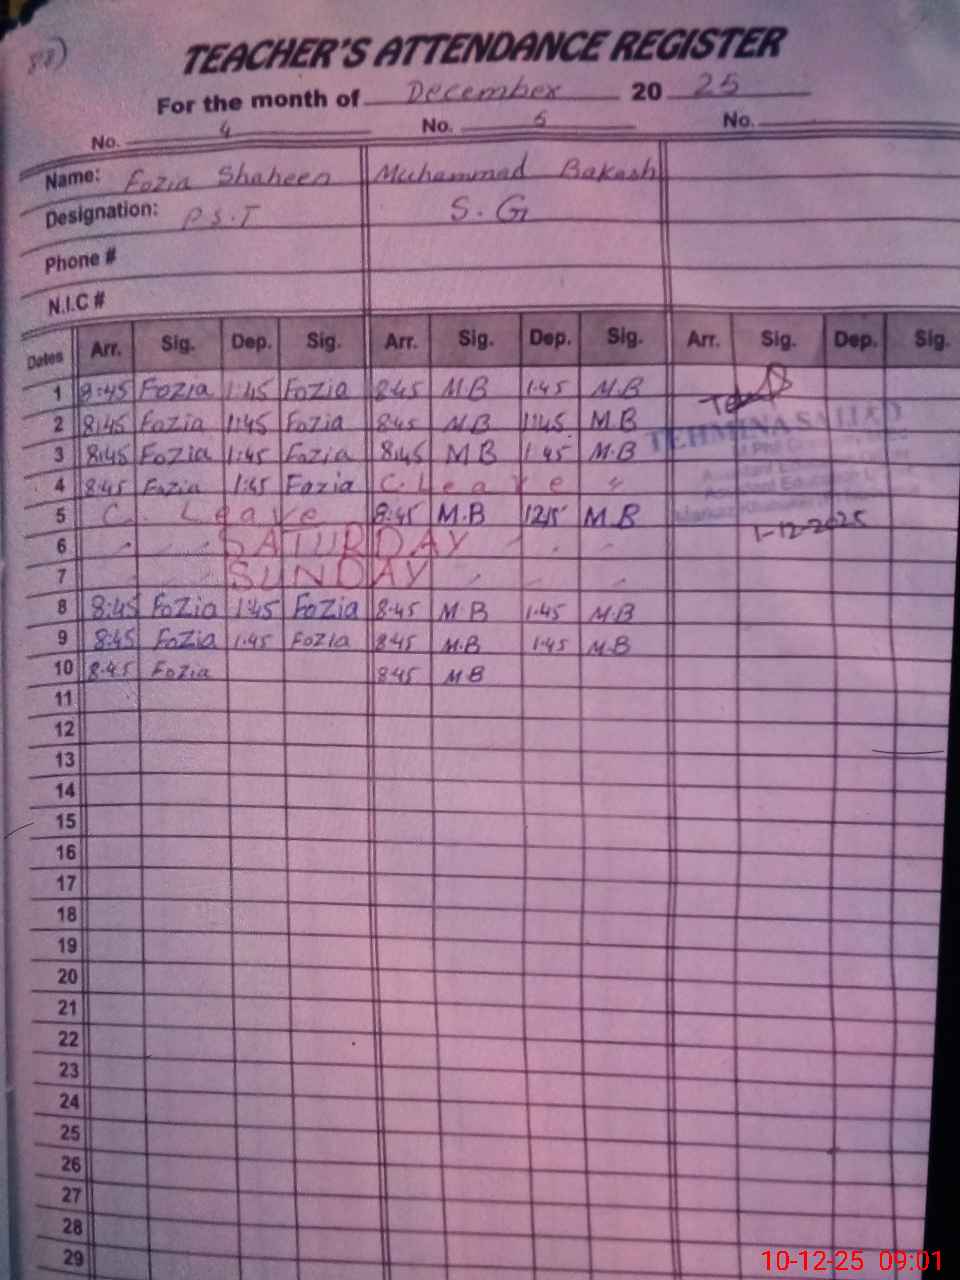 88)
TEACHER'S ATTENDANCE REGISTER
For the month of December 20 25
No. 4 No. 5 No.
Name: Fozia Shaheen Muhammad Bakash
Designation: P.S.T S.G
Phone #
N.I.C #
Dates Arr. Sig. Dep. Sig. Arr. Sig. Dep. Sig. Arr. Sig. Dep. Sig.
1 8:45 Fozia 1:45 Fozia 8:45 M.B 1:45 M.B
2 8:45 Fozia 1:45 Fozia 8:45 M.B 1:45 M.B
TEHMINA SAJJAD
3 8:45 Fozia 1:45 Fozia 8:45 M B 1:45 M.B
4 8:45 Fozia 1:45 Fozia C. Leave "
Assistant Education
5 C. Leave 8:45 M.B 12:15 M.B
1-12-2025
6 SATURDAY
7 SUNDAY
8 8:45 Fozia 1:45 Fozia 8:45 M.B 1:45 M.B
9 8:45 Fozia 1:45 Fozia 8:45 M.B 1:45 M.B
10 8:45 Fozia 8:45 M.B
11
12
13
14
15
16
17
18
19
20
21
22
23
24
25
26
27
28
29
10-12-25 09:01